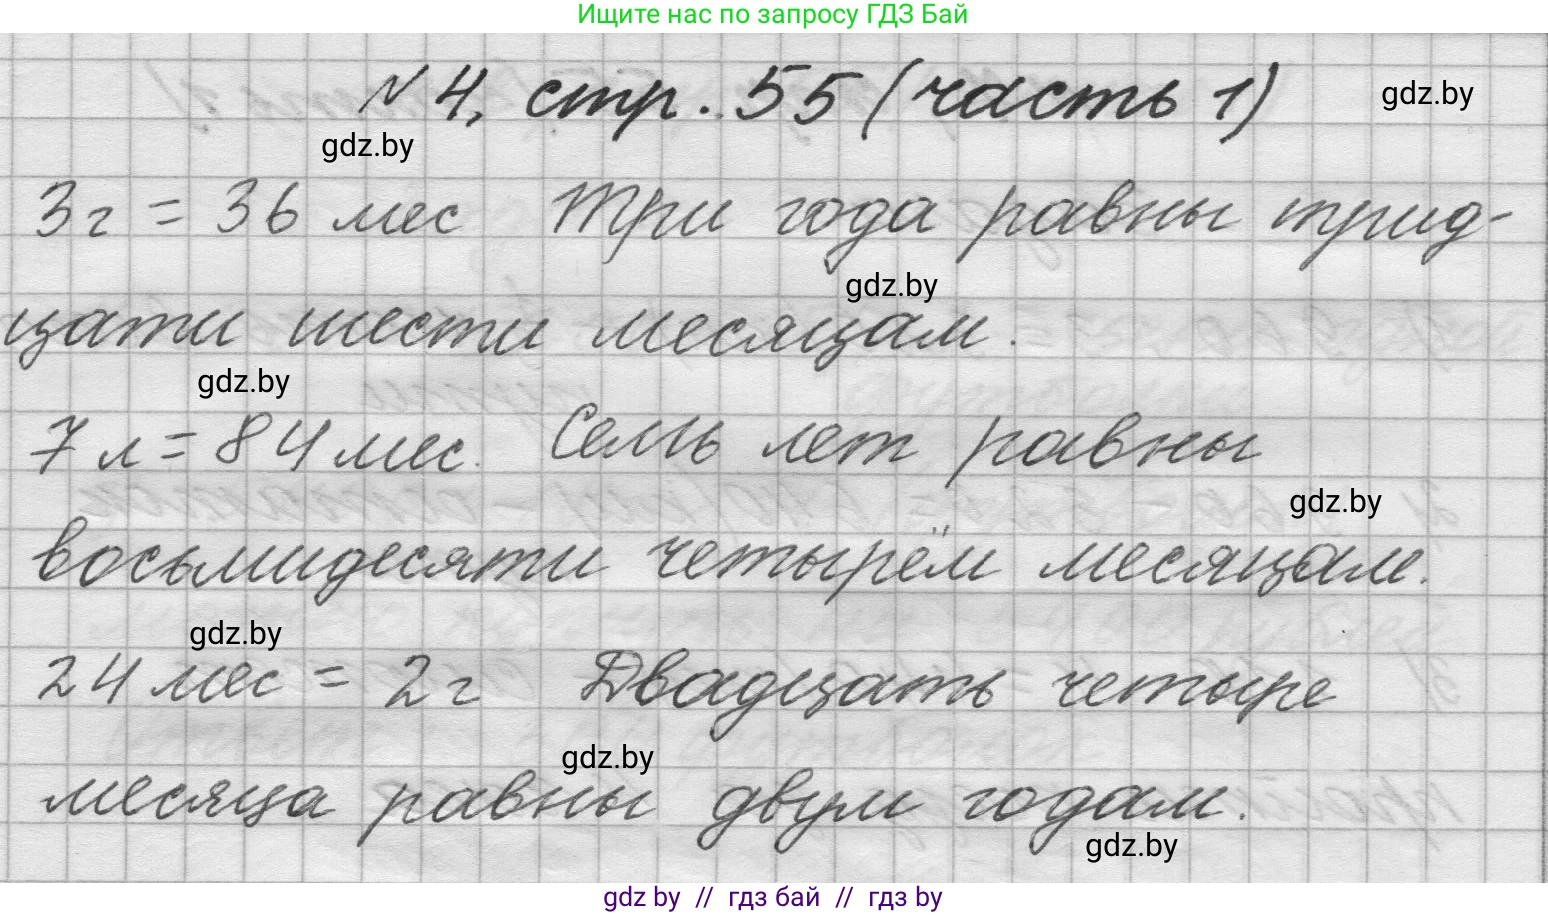 Ищите нас по запросу ГДЗ Бай
№4, стр. 55 (часть 1)
gdz.by
gdz.by
3г = 36 мес Три года равны трид-
gdz.by
цати шести месяцам.
gdz.by
7 л = 84 мес. Семь лет равны
gdz.by
восьмидесяти четырём месяцам.
gdz.by
24 мес = 2 г Двадцать четыре
gdz.by
месяца равны двум годам.
gdz.by
gdz by // гдз бай // гдз by